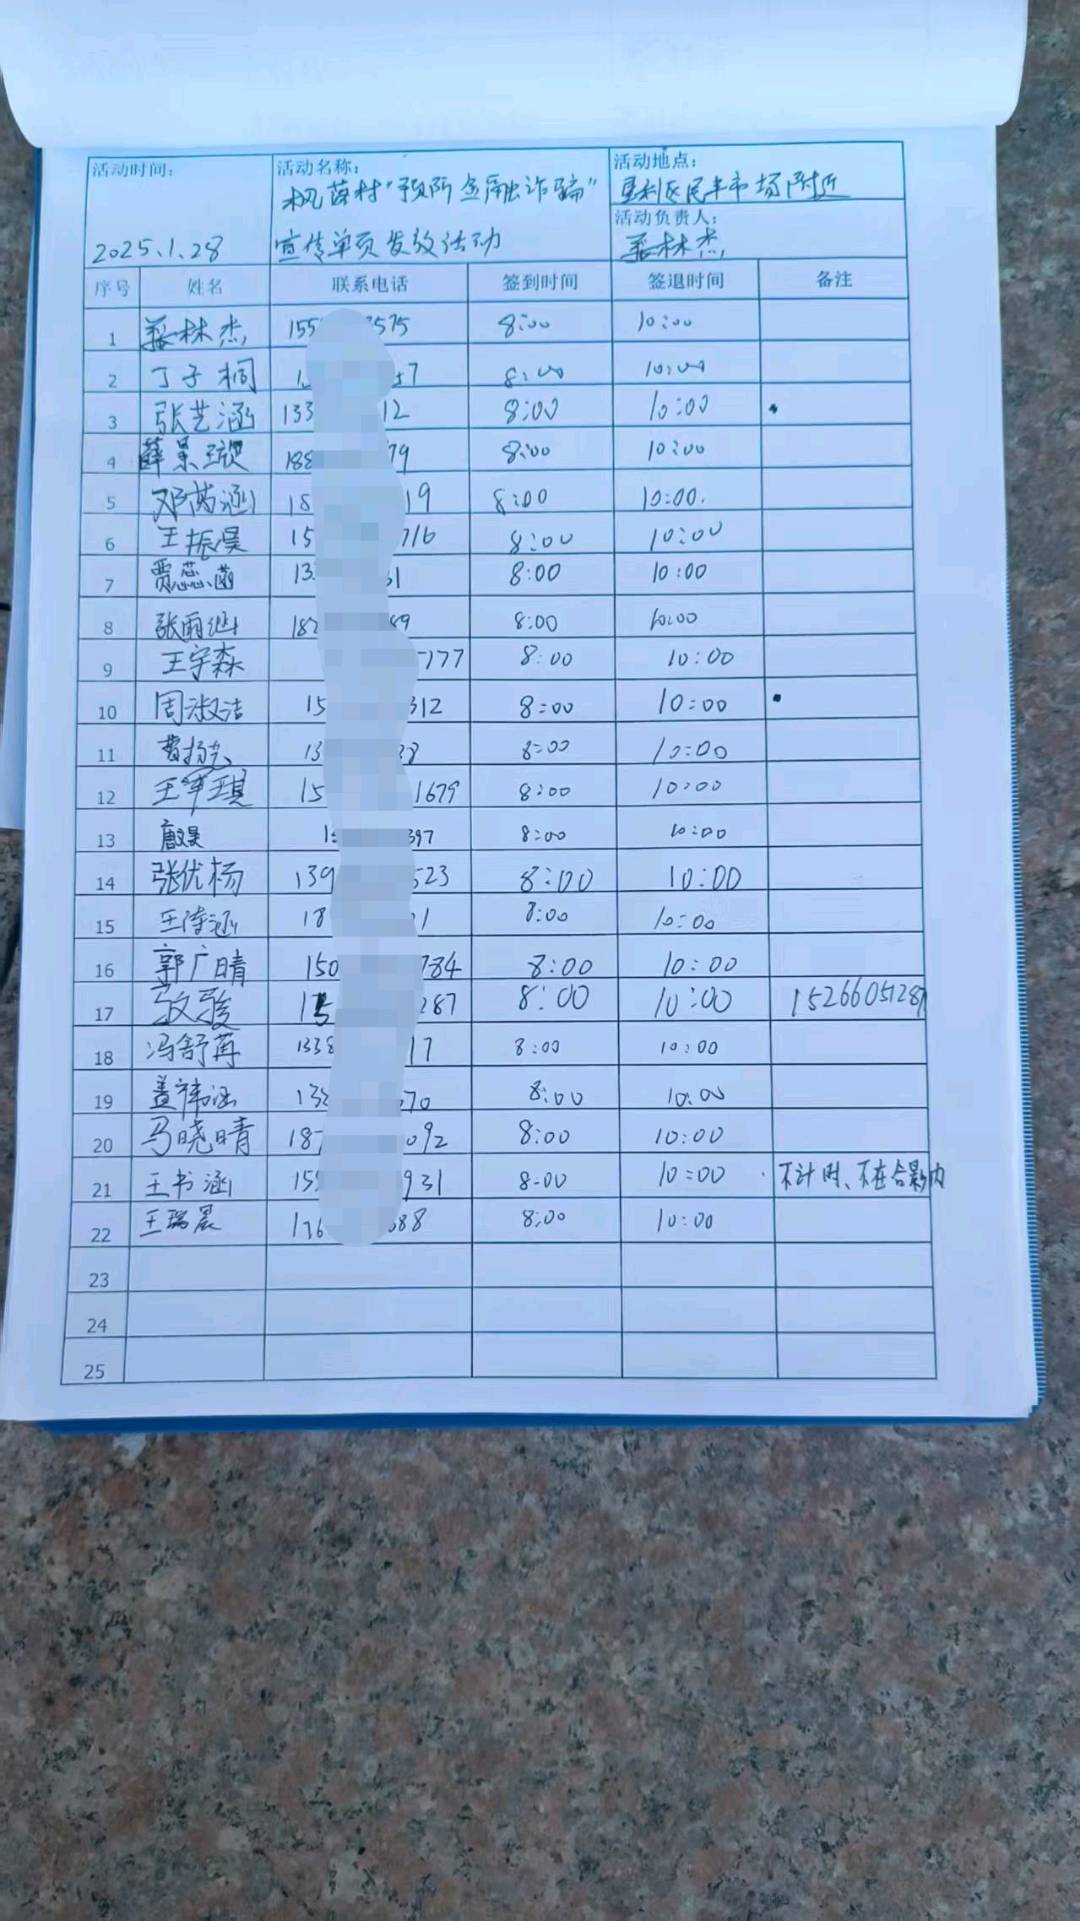 活动时间： 活动名称： 活动地点：
"预防金融诈骗" 垦利区民丰市场附近
活动负责人：
2025.1.28 宣传单页发放活动 林杰
序号 姓名 联系电话 签到时间 签退时间 备注
1 林杰 155 575 8:00 10:00
2 丁子桐 1 7 8:00 10:00
3 张艺涵 133 12 8:00 10:00
4 薛景璇 188 79 8:00 10:00
5 邓芮涵 18 19 8:00 10:00.
6 王振昊 15 716 8:00 10:00
7 贾蕊菡 13 31 8:00 10:00
8 张雨 182 89 8:00 10:00
9 王宇森 777 8:00 10:00
10 周淑洁 15 312 8:00 10:00
11 13 38 8:00 10:00
12 王 琪 15 1679 8:00 10:00
13 1 397 8:00 10:00
14 张优杨 139 523 8:00 10:00
15 王 涵 18 1 8:00 10:00
16 郭广晴 150 784 8:00 10:00
17 骏 15 287 8:00 10:00 1526605128
18 冯舒苒 1338 17 8:00 10:00
19 盖祎涵 138 070 8:00 10:00
20 马晓晴 187 092 8:00 10:00
21 王书涵 155 931 8:00 10:00 不计时、不在合影内
22 王瑞晨 176 688 8:00 10:00
23
24
25